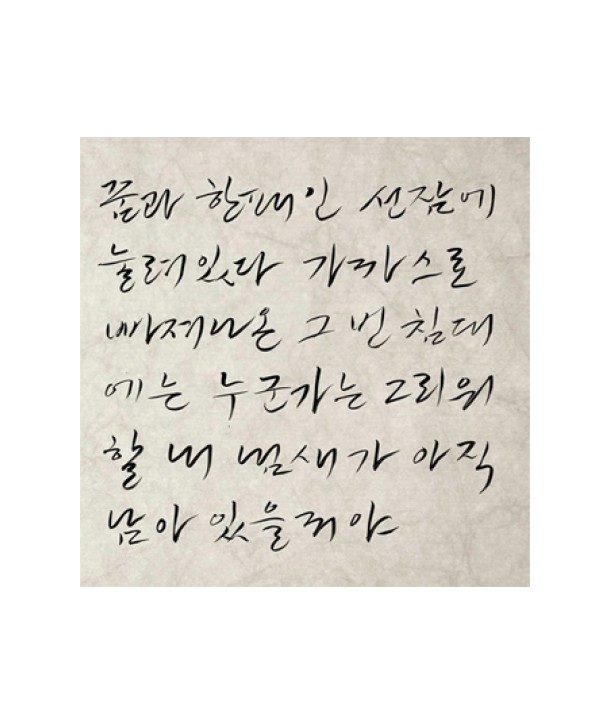 꿈과 한패인 선잠에
눌려있다 가까스로
빠져나온 그 빈 침대
에는 누군가는 그리워
할 내 냄새가 아직
남아 있을꺼야